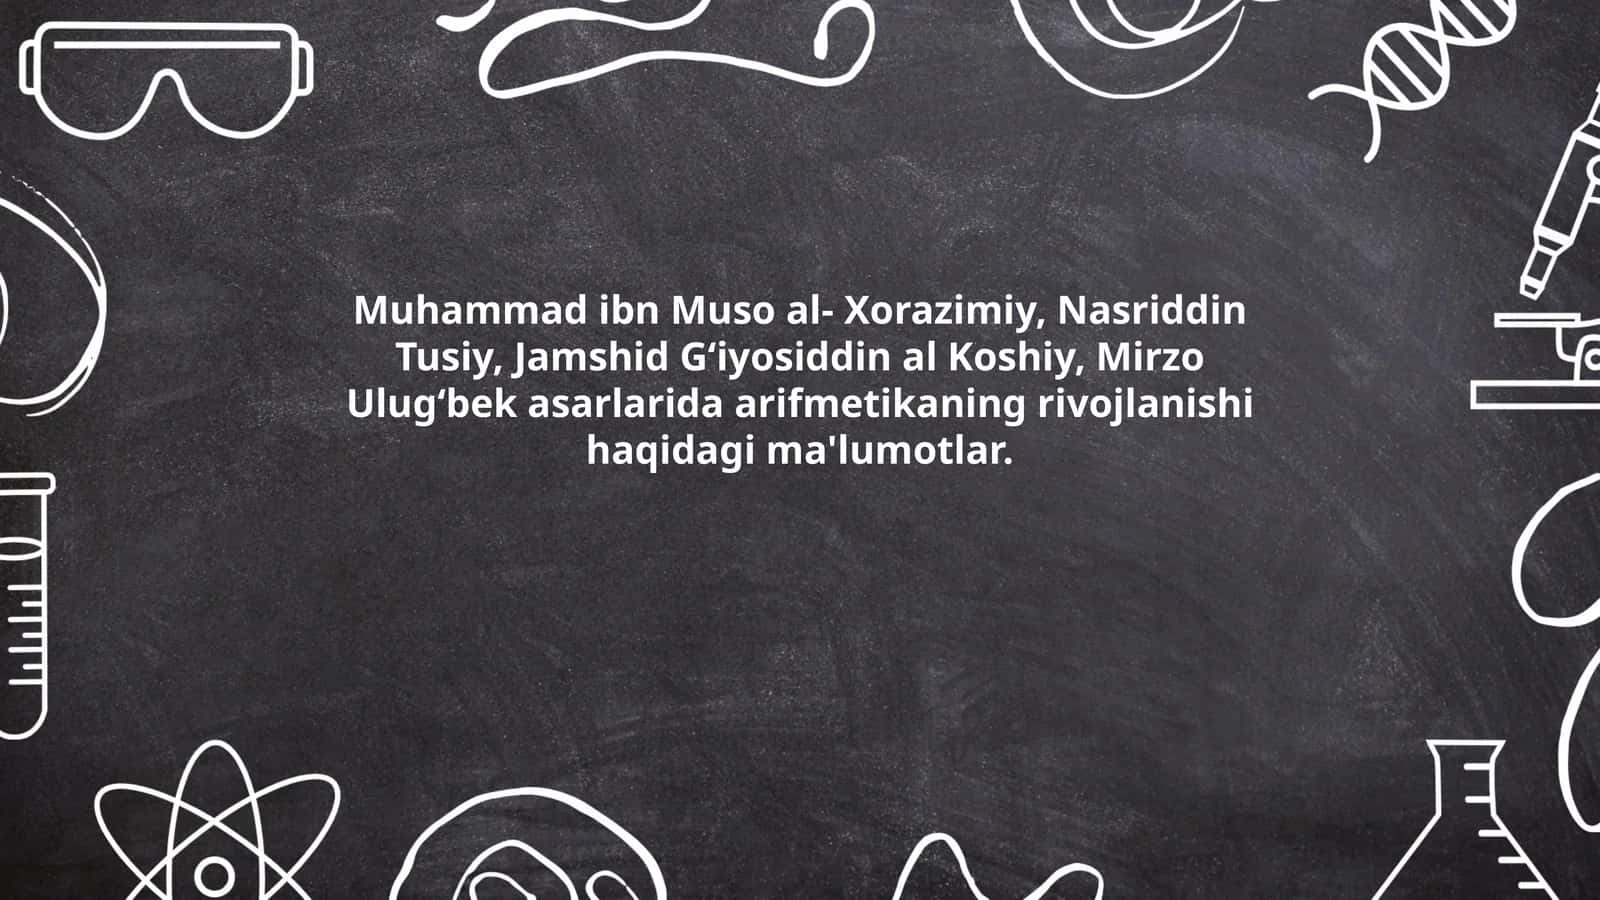 Muhammad ibn Muso al- Xorazimiy, Nasriddin
Tusiy, Jamshid G‘iyosiddin al Koshiy, Mirzo
Ulug‘bek asarlarida arifmetikaning rivojlanishi
haqidagi ma'lumotlar.